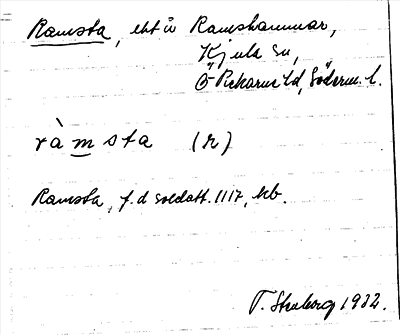 Ramsta, ekt å Ramshammar,
Kjula sn,
Ö Rekarne hd, Söderm. l.
ràmsta (r)
Ramsta, f.d soldatt. 1117, kb.
T. Stenberg 1932.